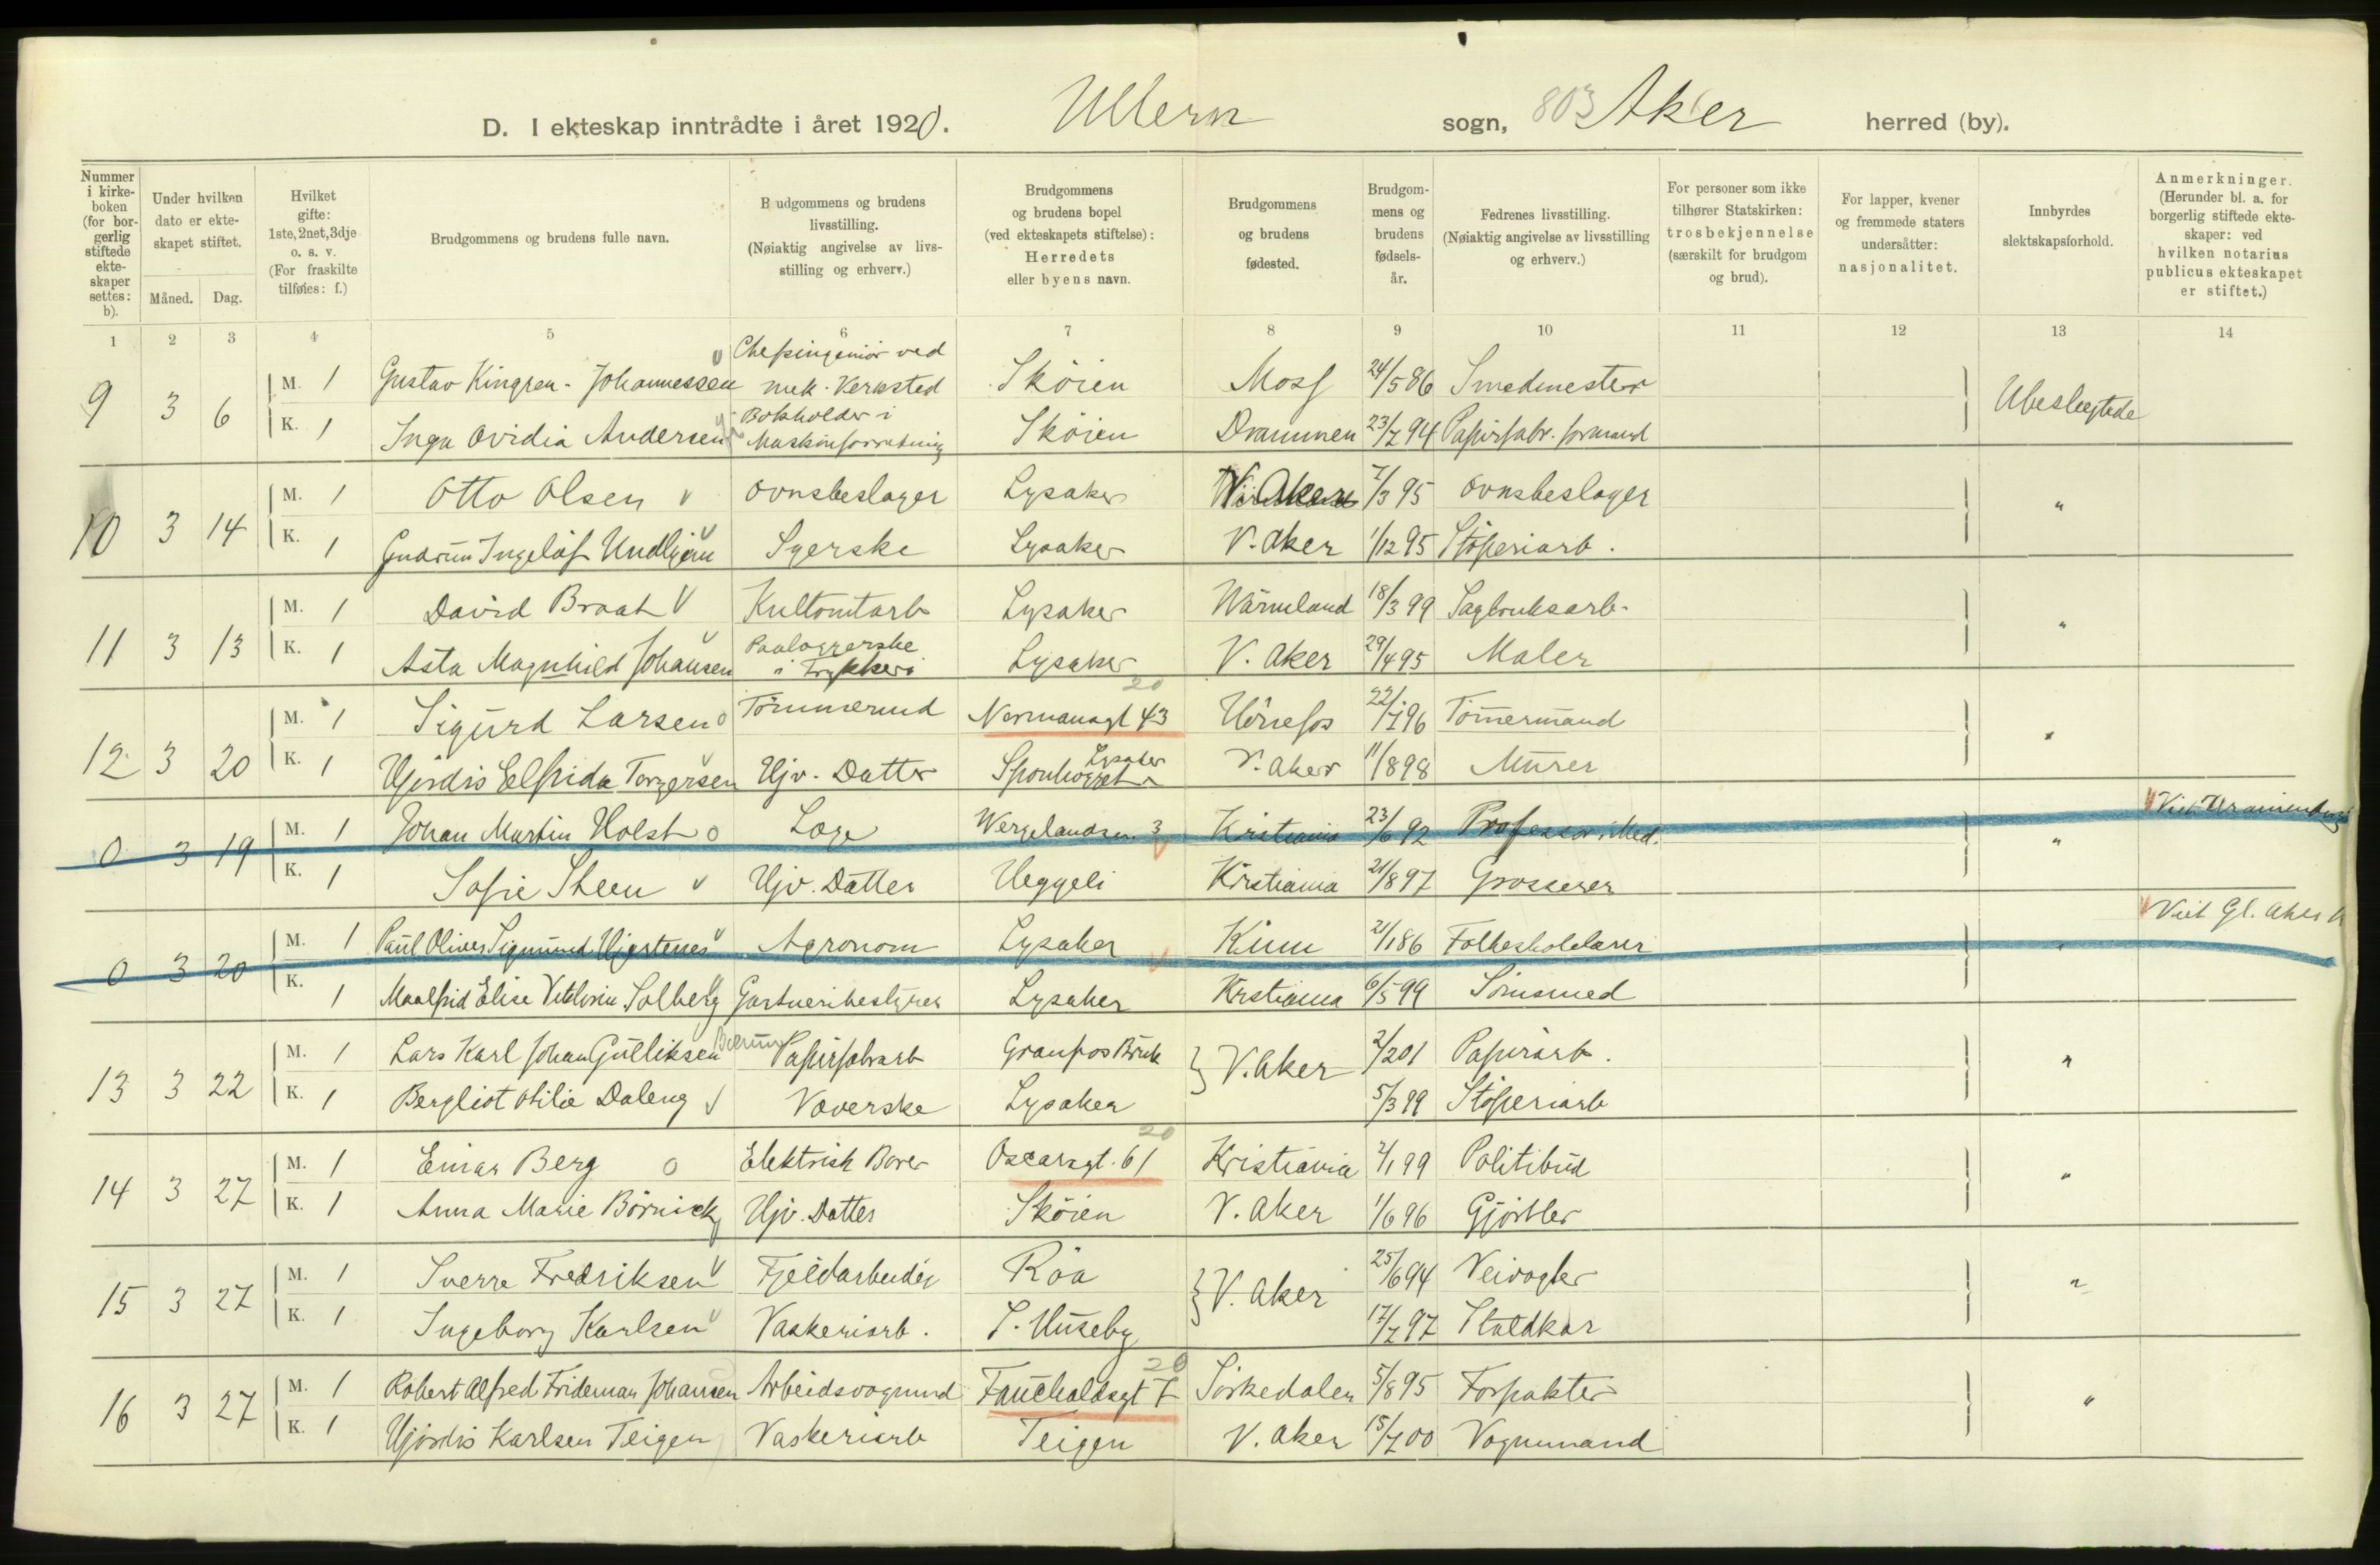 D. I ekteskap inntrådte i året 1920. Ullern sogn, 803 Aker herred (by).
Nummer i kirke- boken (for bor- gerlig stiftede ekte- skaper settes: b).
Under hvilken dato er ekte- skapet stiftet.
Måned. Dag.
Hvilket gifte: 1ste, 2net, 3dje o. s. v. (For fraskilte tilføies: f.)
Brudgommens og brudens fulle navn.
B udgommens og brudens livsstilling. (Nøiaktig angivelse av livs- stilling og erhverv.)
Brudgommens og brudens bopel (ved ekteskapets stiftelse): Herredets eller byens navn.
Brudgommens og brudens fødested.
Brudgom- mens og brudens fødsels- år.
Fedrenes livsstilling. (Nøiaktig angivelse av livsstilling og erhverv.)
For personer som ikke tilhører Statskirken: trosbekjennelse (særskilt for brudgom og brud).
For lapper, kvener og fremmede staters undersåtter: nasjonalitet.
Innbyrdes slektskapsforhold.
Anmerkninger. (Herunder bl. a. for borgerlig stiftede ekte- skaper: ved hvilken notarius publicus ekteskapet er stiftet.)
1 2 3 4 5 6 7 8 9 10 11 12 13 14
9 3 6 M. 1 Gustav Kingren - Johannessen Chefsingeniör ved mek. Verksted Sköien Moss 24/5 86 Smedmester Ubeslegtede
K. 1 Inga Ovidia Andersen Bokholder i Maskinforretning Sköien Drammen 23/7 94 Papirfabr. formand
10 3 14 M. 1 Otto Olsen Ovnsbeslager Lysaker V. Aker 7/3 95 Ovnsbeslager "
K. 1 Gudrun Ingelöf Undhjem Syerske Lysaker V. Aker 1/12 95 Stöperiarb.
11 3 13 M. 1 David Braat Kultomtarb Lysaker Wärmland 18/3 99 Sagbruksarb. "
K. 1 Asta Magnhild Johansen Paaloggerske i Trykkeri Lysaker V. Aker 29/4 95 Maler
12 3 20 M. 1 Sigurd Larsen Tömmermd Normansgt 43 20 Hönefos 22/7 96 Tömmermand "
K. 1 Hjördis Elfrida Torgersen Hjv. Datter Lysaker V. Aker 11/8 98 Murer
0 3 19 M. 1 Johan Martin Holst Læge Wergelandsv. 3 Kristiania 23/6 92 Professor i Med. " Viet Uranienborg
K. 1 Sofie Steen Hjv. Datter Heggeli Kristiania 21/8 97 Grosserer
0 3 20 M. 1 Paul Oliver Sigmund Hjertenes Agronom Lysaker Kinn 21/1 86 Folkeskolelærer " Viet Gl. Aker k
K. 1 Maalfrid Elise Viktoria Solberg Gartneribestyrer Lysaker Kristiania 6/5 99 Sömsmed
13 3 22 M. 1 Lars Karl Johan Gulliksen Bærum Papirfabrarb Granfos Bruk } V. Aker 2/2 01 Papirarb. "
K. 1 Bergliot Otilie Daleng Væverske Lysaker 5/3 99 Stöperiarb
14 3 27 M. 1 Einar Berg Elektrisk Borer Oscarsgt. 61 20 Kristiania 2/1 99 Politibud "
K. 1 Anna Marie Börnick Hjv. Datter Sköien V. Aker 1/6 96 Gjörtler
15 3 27 M. 1 Sverre Fredriksen Fjeldarbeider Röa } V. Aker 25/6 94 Veivogter "
K. 1 Ingeborg Karlsen Vaskeriarb. S. Huseby 17/7 97 Staldkar
16 3 27 M. 1 Robert Alfred Frideman Johansen Arbeidsvognmd Fauchaldsgt 7 20 Sörkedalen 5/8 95 Forpakter "
K. 1 Hjördis Karlsen Teigen Vaskeriarb Teigen V. Aker 15/7 00 Vognmand